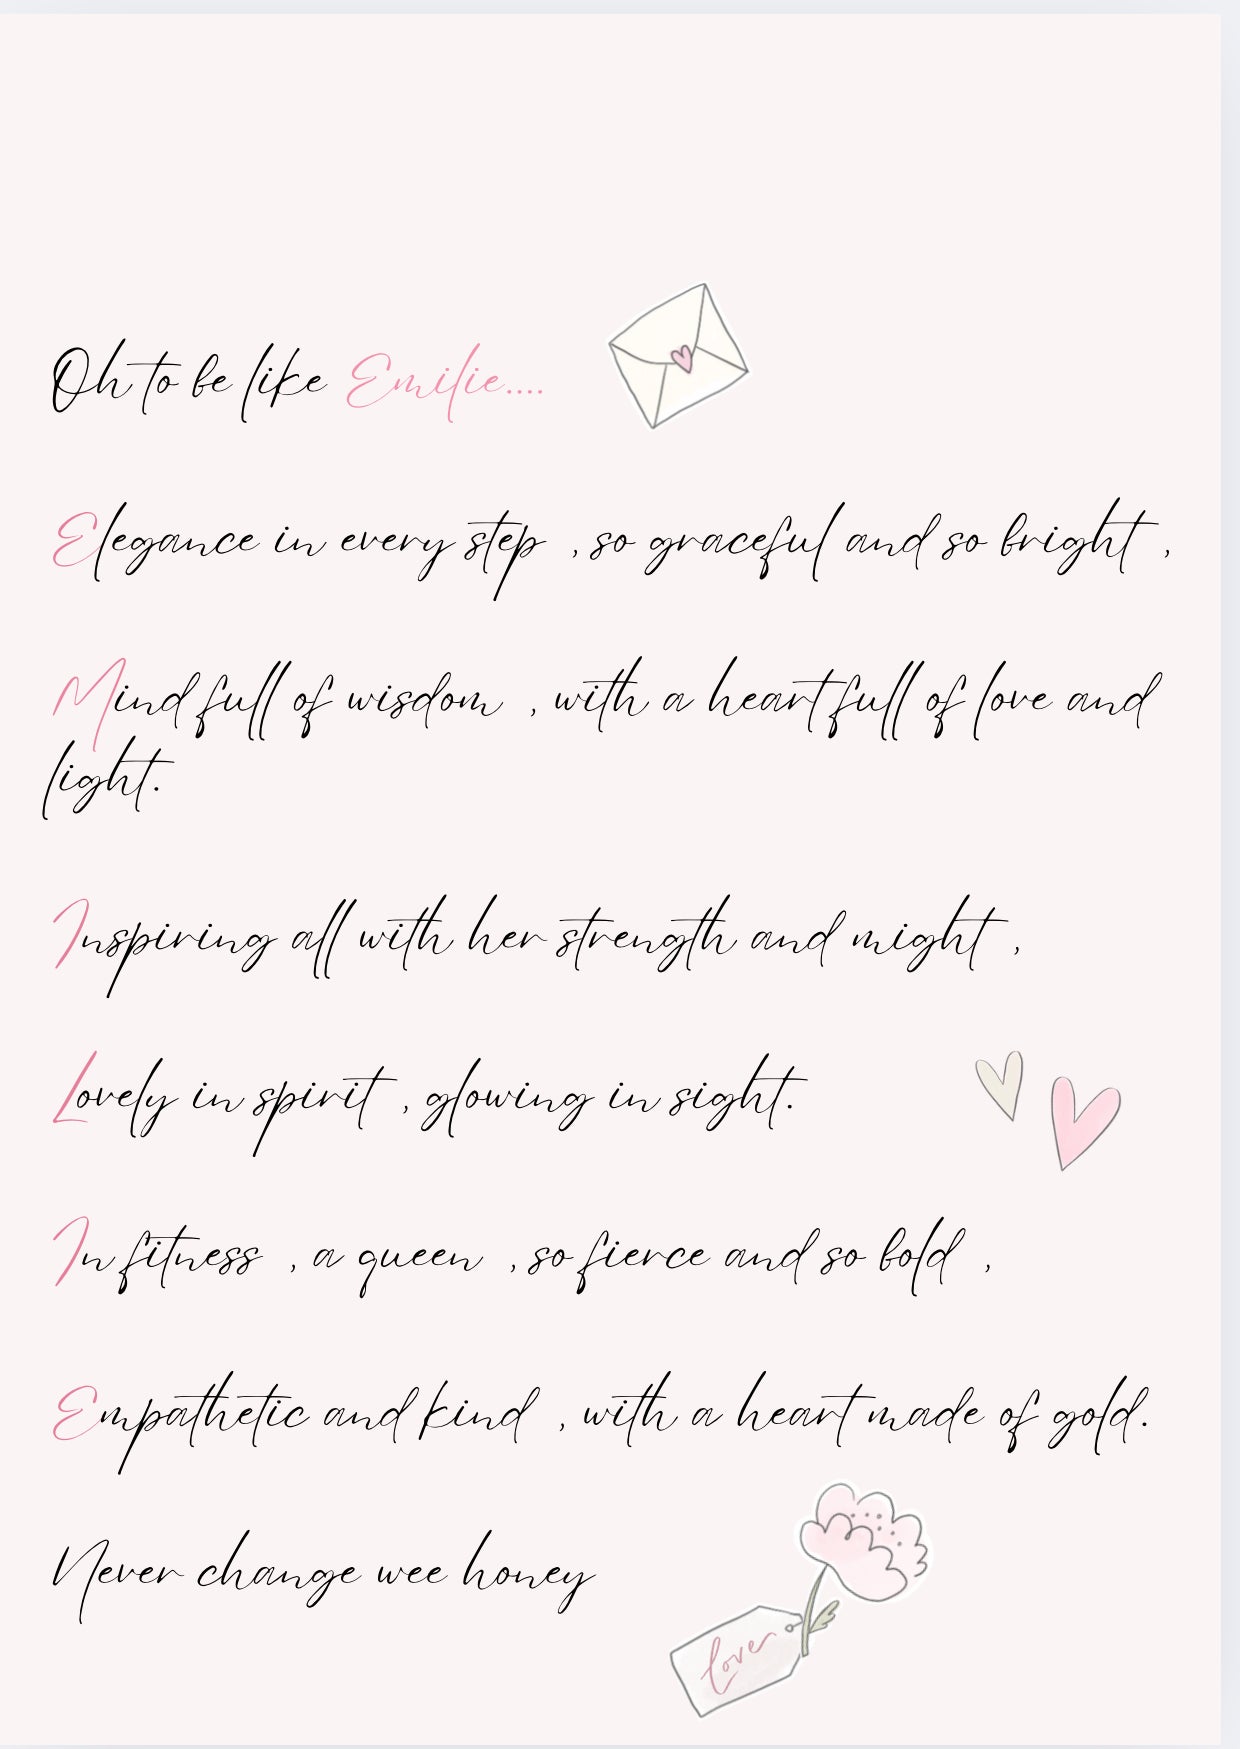 Oh to be like Emilie....
Elegance in every step , so graceful and so bright ,
Mind full of wisdom , with a heart full of love and
light.
Inspiring all with her strength and might ,
Lovely in spirit , glowing in sight.
In fitness , a queen , so fierce and so bold ,
Empathetic and kind , with a heart made of gold.
Never change wee honey
lover